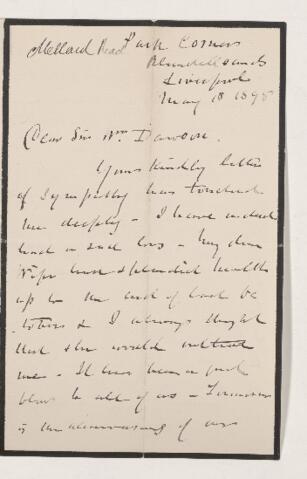 Mellard Reade Park Corner
Blundellsands
Liverpool
May 18 1898
Dear Sir Wm Dawson.
Your kindly letter
of sympathy has touched
me deeply - I have indeed
had a sad loss - My dear
Wife had splendid health
up to the end of last
& I always thought
that she would outlive
me - It has been a great
blow to all of us -
is the anniversary of our